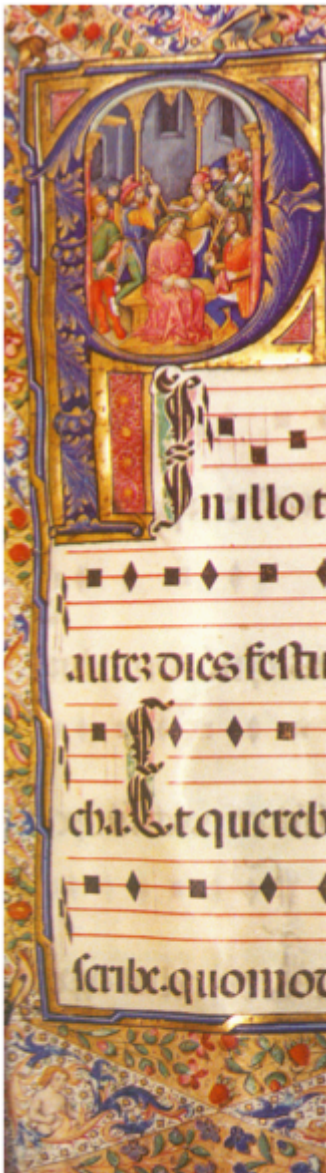 In illo t
autez dies festu
cha. Et quereb
scribe. quomod